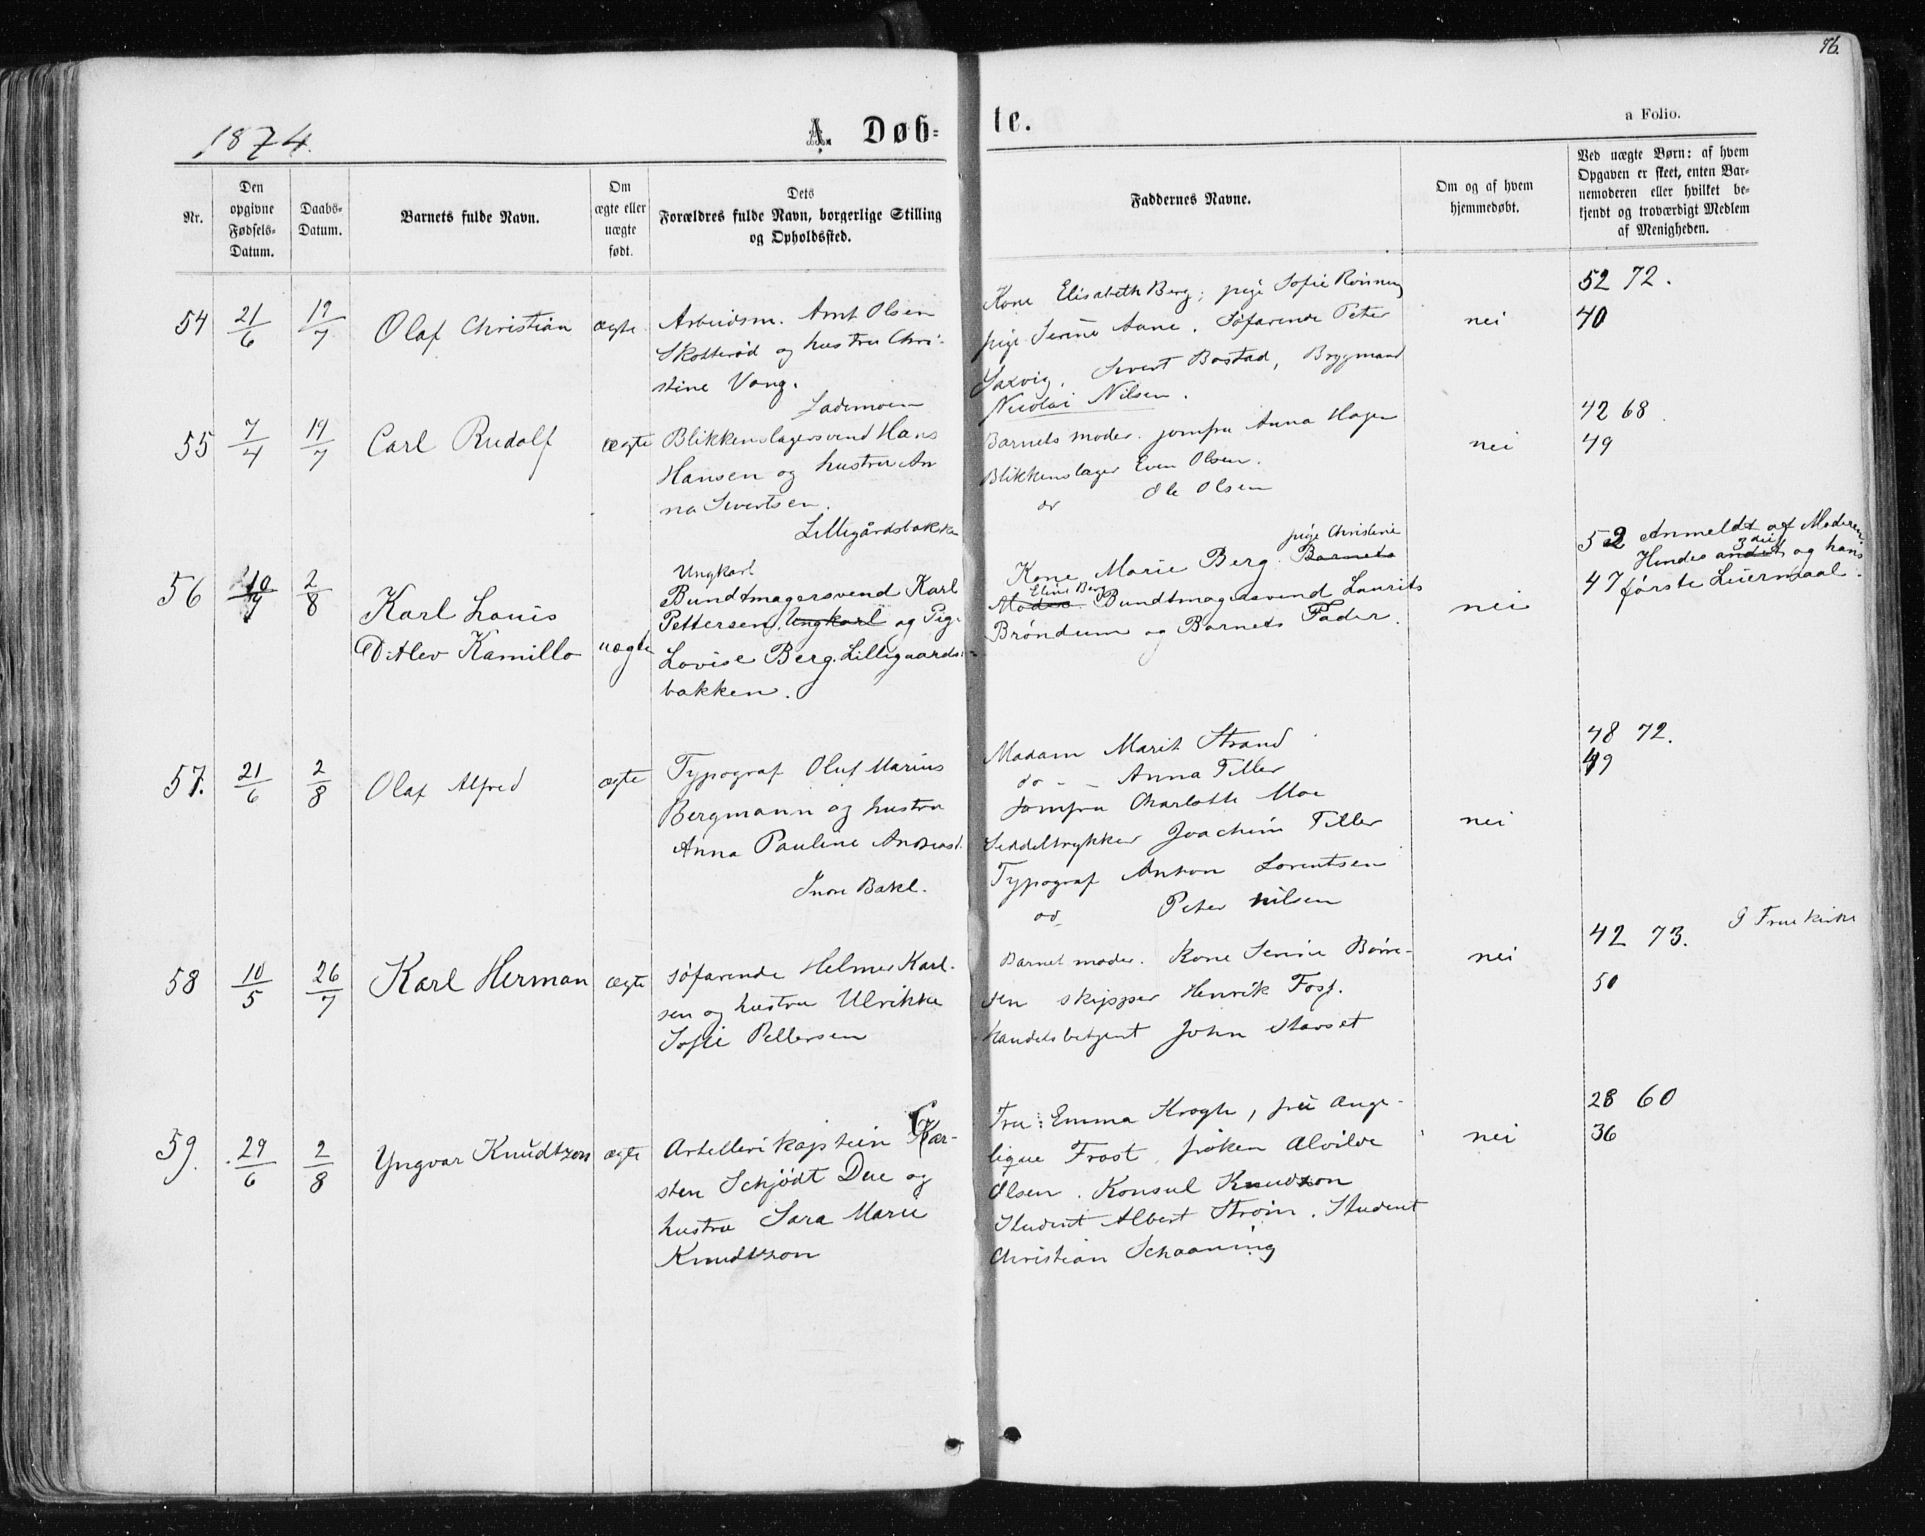 76.
1874.
A. Døb-
te.
a Folio.
Nr.
Den opgivne Fødsels-Datum.
Daabs-Datum.
Barnets fulde Navn.
Om ægte eller uægte født.
Dets Forældres fulde Navn, borgerlige Stilling og Opholdssted.
Faddernes Navne.
Om og af hvem hjemmedøbt.
Ved uægte Børn: af hvem Opgaven er skeet, enten Barnemoderen eller hvilket bekjendt og troværdigt Medlem af Menigheden.
54 21/6 19/7 Olaf Christian ægte
Arbeidsm. Arnt Olsen
Skotterød og hustru Chri-
stine Vang.
Lademoen
Kone Elisabeth Berg; pige Sofie Rønning
pige Serine Aune. Søfarende Peter
Saxvig. Sivert Bostad, Brygmand
Nicolai Nilsen.
nei
52 72.
40
55 7/4 19/7 Carl Rudolf ægte
Blikkenslagersvend Hans
Hansen og hustru An
na Sivertsen.
Lillegårdsbakken
Barnets moder. jomfru Anna Hagen
Blikkenslager Even Olsen.
do Ole Olsen
nei
42 68.
49
56 10/4 2/8 Karl Louis
Ditlev Kamillo uægte
Ungkarl
Bundtmagersvend Karl
Pettersen, Ungkarl og Pige
Lovise Berg. Lillegaards-
bakken.
pige Christine
Kone Marie Berg. Barnets
Eline Berg
Moder. Bundtmagersvend Laurits
Brøndum og Barnets Fader.
nei
52 Anmeldt af Moderen.
3die
Hendes andet og hans
47 første Leiermaal.
57. 21/6 2/8 Olaf Alfred ægte
Typograf Oluf Marius
Bergmann og hustru
Anna Pauline Andreasd.
Indre Bakl.
Madam Marit Strand
do - Anna Tiller
Jomfru Charlotte Moe
Seddeltrykker Joachim Tiller
Typograf Anton Lorentsen
do Peter Nilsen
nei
48 72.
49
58 10/5 26/7 Karl Herman ægte
søfarende Helmer Karl-
sen og hustru Ulrikke
Sofie Pettersen
Barnet moder. Kone Serine Børre-
sen skipper Henrik Foss.
Handelsbetjent John Stavset
nei
42 73.
50
I Frue kirke
59. 29/6 2/8 Yngvar Knudtzon ægte
Artillerikaptein Kar-
sten Schjødt Due og
hustru Sara Marie
Knudtzon
Fru: Emma Krogh, fru Ange-
lique Frost, frøken Alvilde
Olsen. Konsul Knudzon
Student Albert Strøm. Student
Christian Schaaning
nei
28 60
36